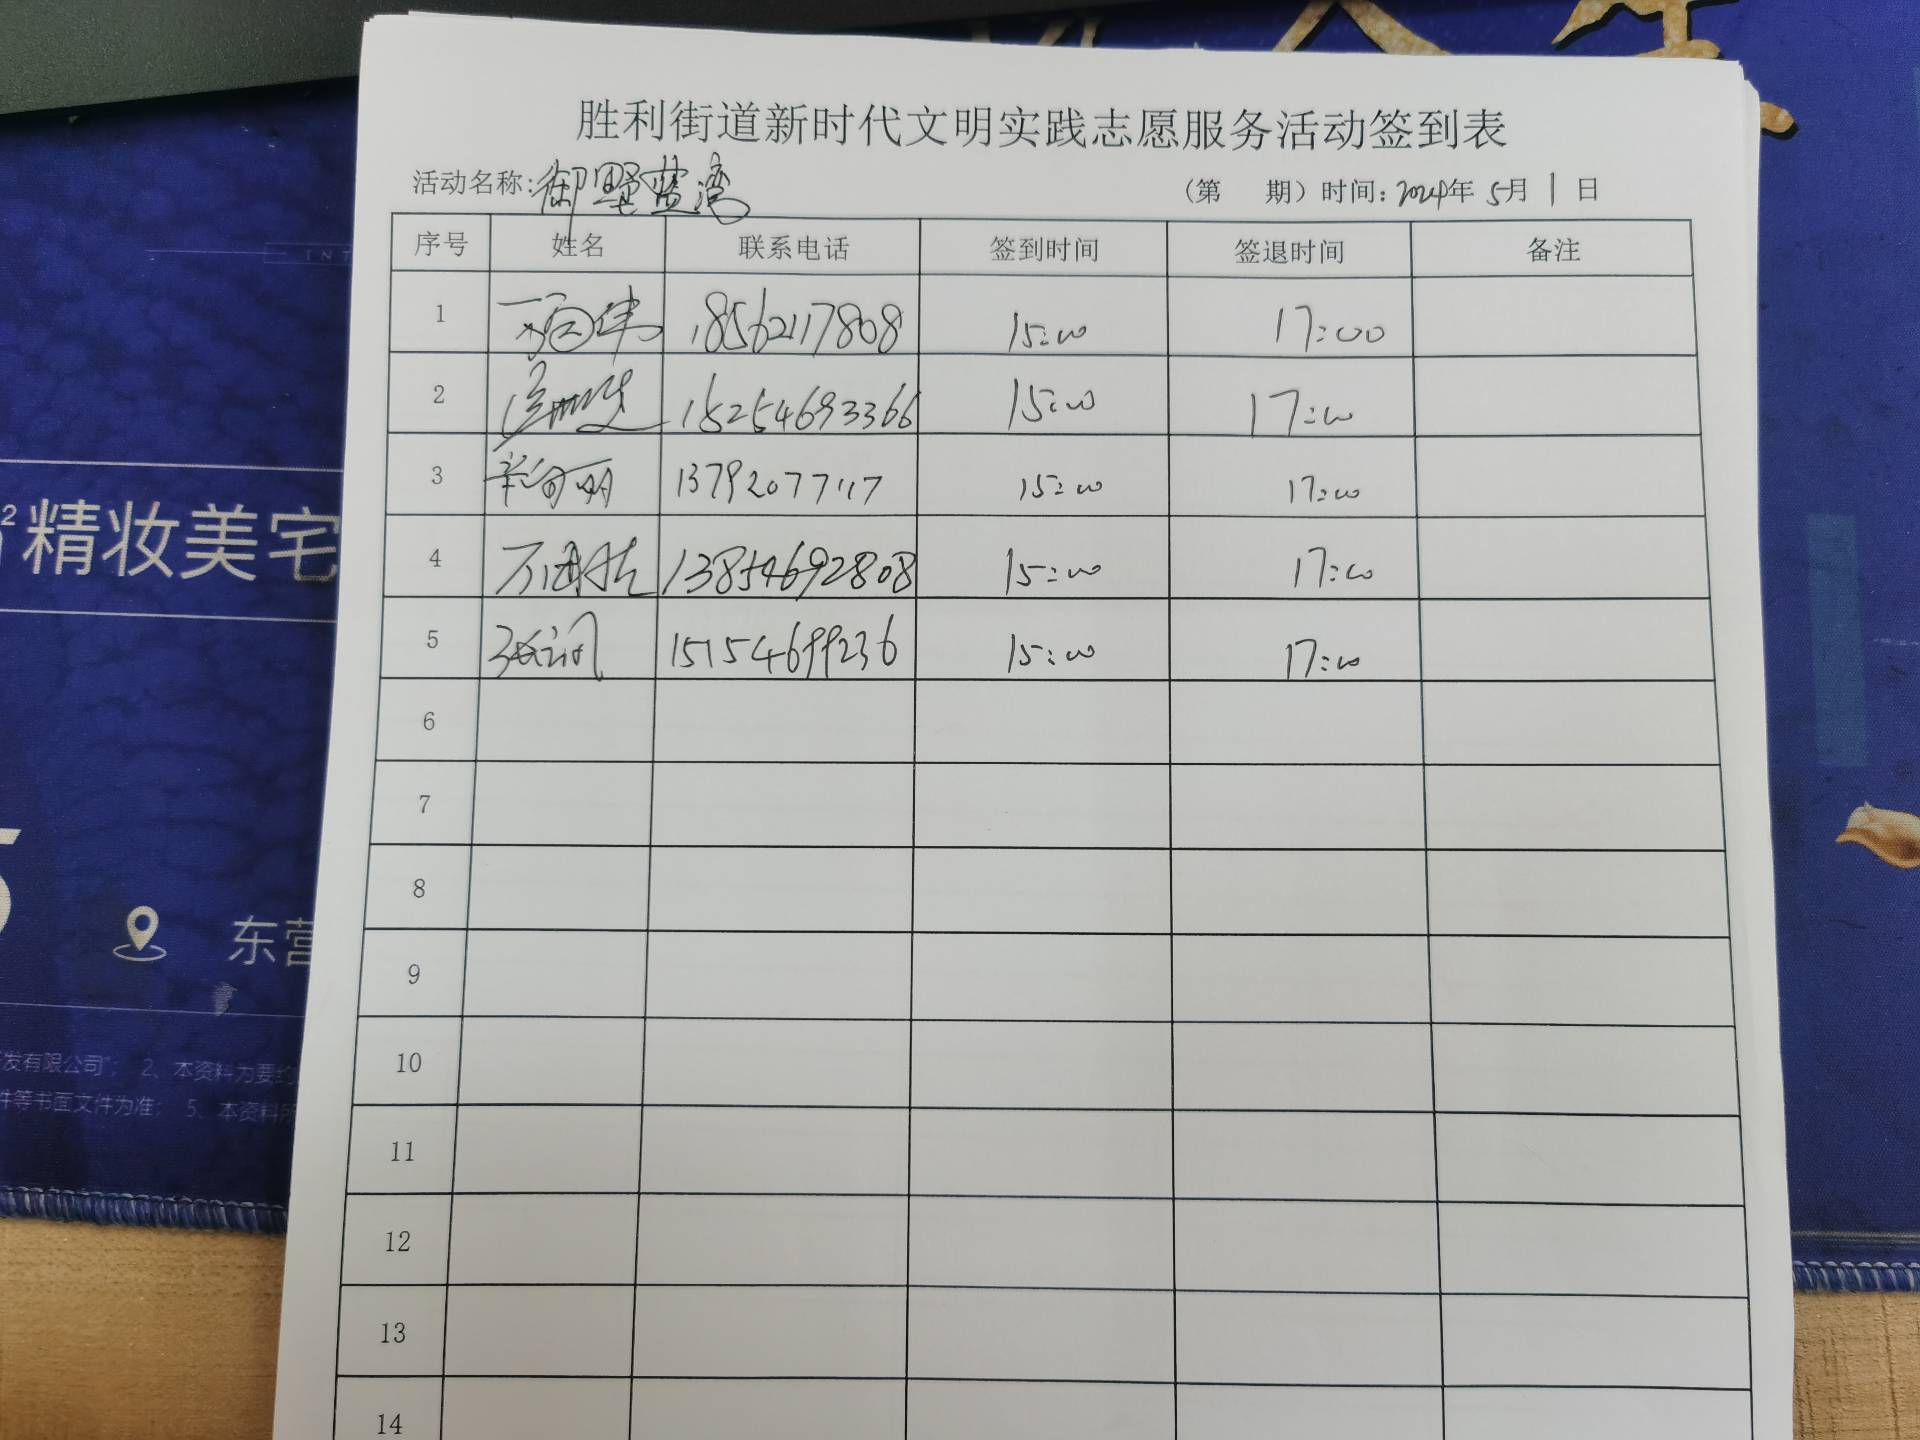 胜利街道新时代文明实践志愿服务活动签到表
活动名称:御墅蓝湾 (第 期) 时间:2024年5月1日
序号 姓名 联系电话 签到时间 签退时间 备注
1 18562117808 15:00 17:00
2 15254693366 15:00 17:00
3 13792077117 15:00 17:00
4 13854692808 15:00 17:00
5 15154699236 15:00 17:00
6
7
8
9
10
11
12
13
14
INT
²精妆美宅
5
东营
发有限公司"; 2、本资料为要约
件等书面文件为准; 5、本资料所